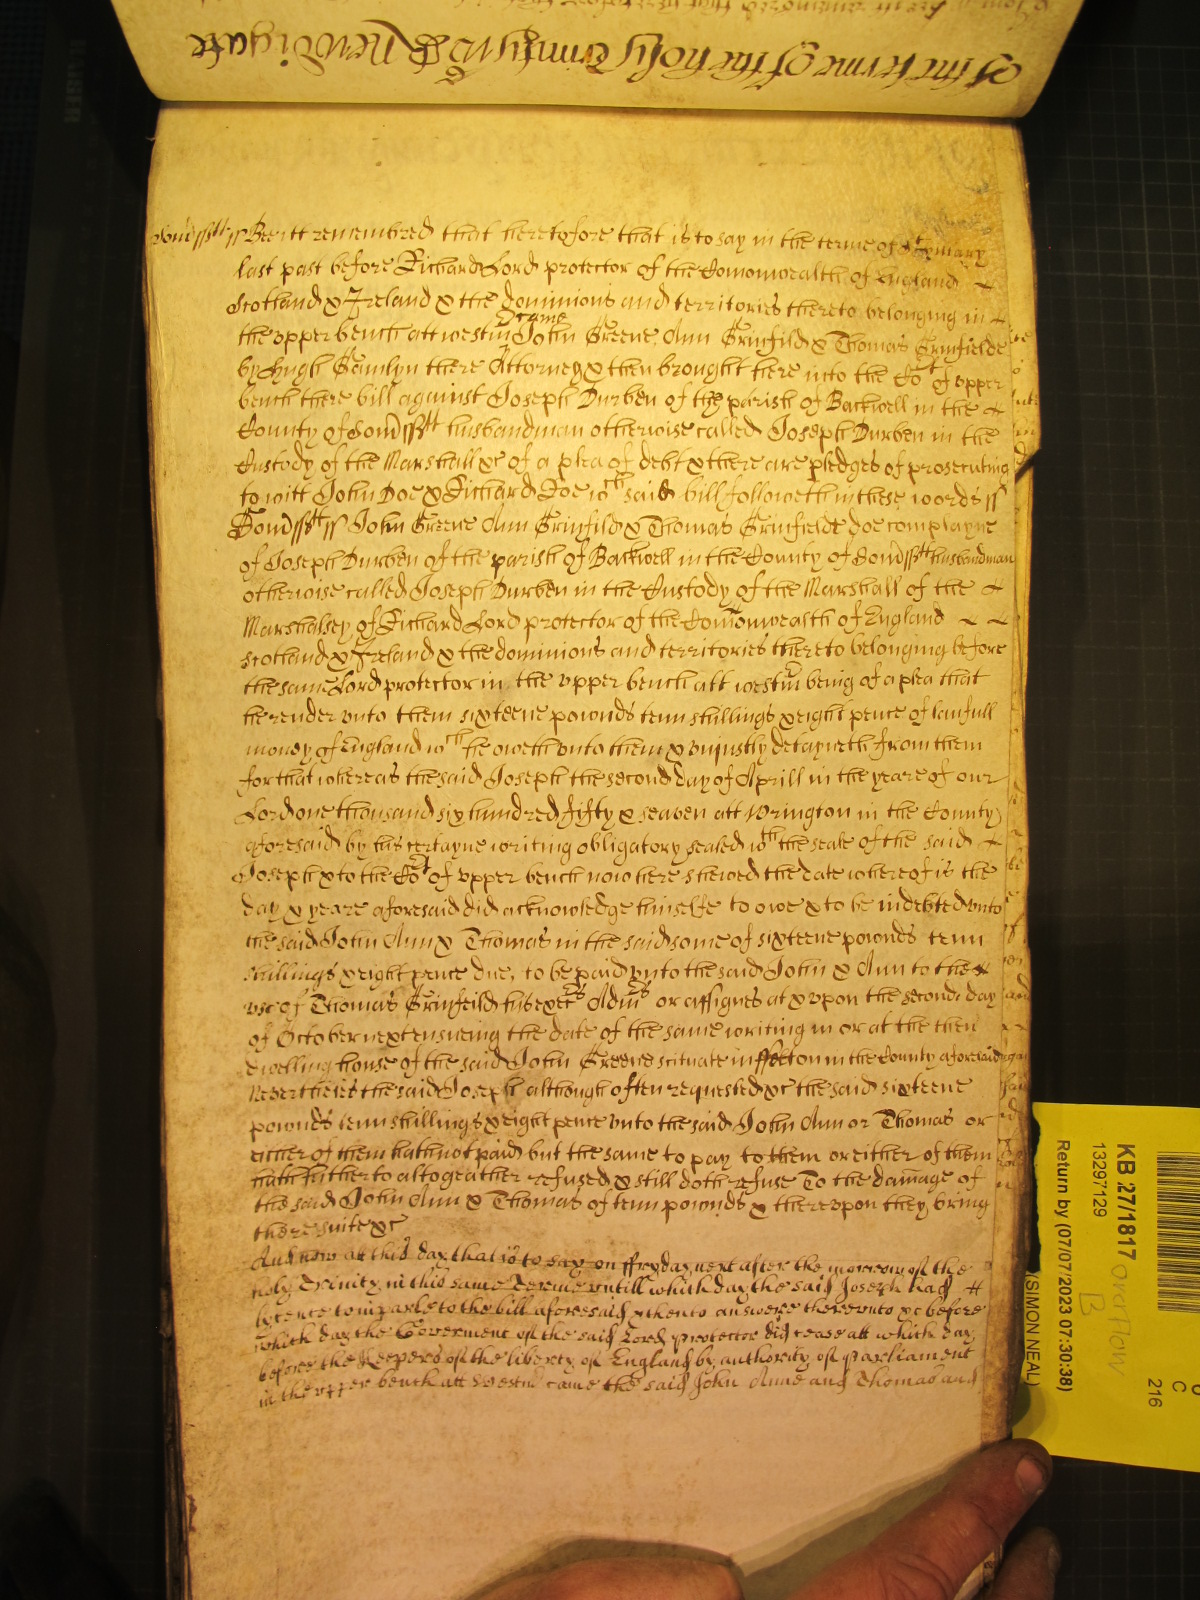 of the terme of the holy Trinity 1659 Newdigate
Som̃sstt ss Bee itt remembred that heretofore that is to say in the terme of St Hillary
last past before Richard Lord protector of the Comonwealth of England
Scotland & Ireland & the dominions and territories thereto belonging in
the upper bench att westm̃ came John Greene Ann Grinfild & Thomas Grinfielde
by Hugh Gamlyn there Attorney & then brought here into the Cort of upper
bench there bill against Joseph Durben of the parish of Backwell in the
County of Som̃sstt husbandman otherwise called Joseph Durben in the
Custody of the Marshall &c of a plea of debt & there are pledges of prosecuting
to witt John Doe & Richard Roe wch said bill followeth in these words ss
Som̃sstt ss John Greene Ann Grinfild & Thomas Grinfeilde doe complayne
of Joseph Durben of the parish of Backwell in the County of Som̃sstt husbandman
otherwise called Joseph Durben in the Custody of the Marshall of the
Marshalsey of Richard Lord protector of the Com̃onwealth of England
Scotland & Ireland & the dominions and territories thereto belonging before
the same Lord protector in the upper bench att westm̃ being of a plea that
he render unto them sixteene pownds tenn shillings & eight pence of lawfull
money of England wch he oweth unto them & uniustly detayneth from them
for that whereas the said Joseph the second day of Aprill in the yeare of our
Lord one thousand six hundred fifty & seaven att Wrington in the County
aforesaid by his certayne writing obligatory sealed wth the seale of the said
Joseph & to the Cort of upper bench now here shewed the date whereof is the
day & yeare aforesaid did acknowledge himselfe to owe & to be indebted unto
the said John Ann & Thomas in the said some of sixteene pownds tenn
shillings & eight pence due, to be paid unto the said John & Ann to the
use of Thomas Grinfeild his exectrs Admrs or assignes at & upon the second day
of October next ensueing the date of the same writing in or at the then
dwelling house of the said John Greene scituate in in the County aforesaid
Neverthelesse the said Joseph although often requested &c the said sixteene
pownds tenn shillings & eight pence unto the said John Ann or Thomas or
either of them hath not paid but the same to pay to them or either of them
hath hitherto altogeather refused & still doth refuse To the dam̃age of
the said John Ann & Thomas of tenn pownds & thereupon they bring
there suite &c
And now att this day that is to say on ffryday next after the morrow of the
holy Trinity in this same Terme untill which day the said Joseph had
lycence to imparle to the bill aforesaid & then to answere thereunto &c before
which day the Goverment of the said Lord Protector did cease att which day
before the Keepers of the liberty of England by authority of Parliament
in the upper bench att Westm̃ came the said John Anne and Thomas and
KB 27/1817 overflow
B
13297129
Return by (07/07/2023 07:30:38)
(SIMON NEAL)
C
216